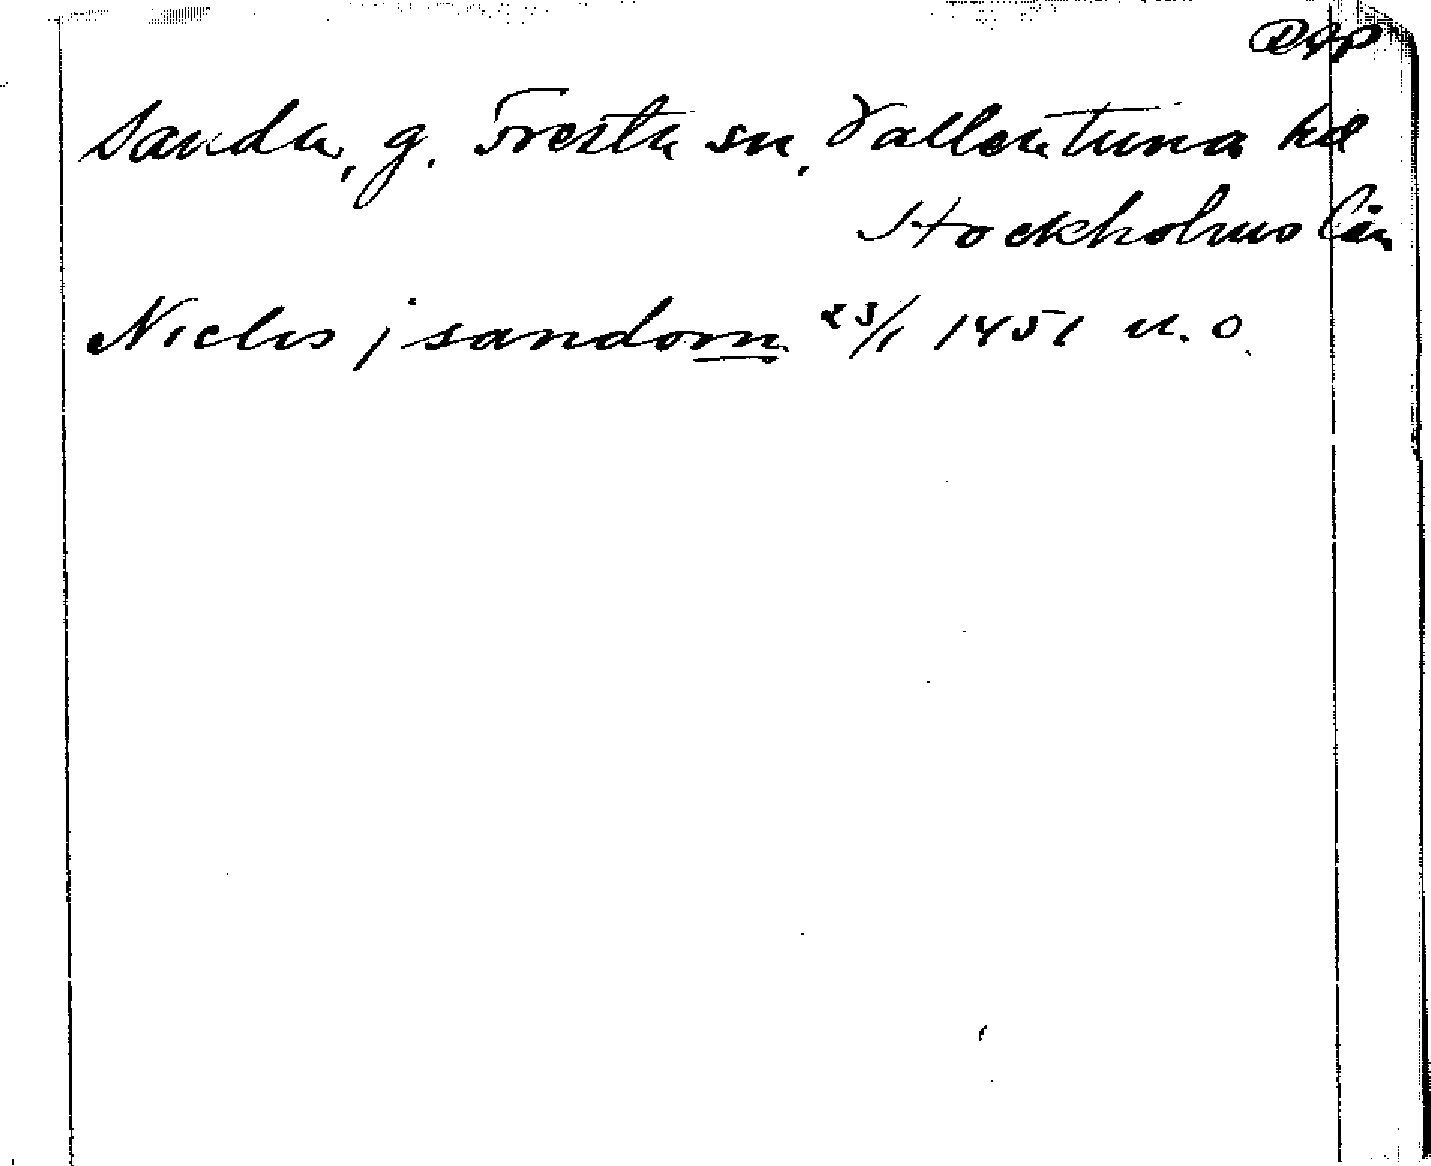 Sanda, g. Fresta sn, Vallentuna hd
Stockholms län
Niclis j sandom 23/1 1451 u. o.